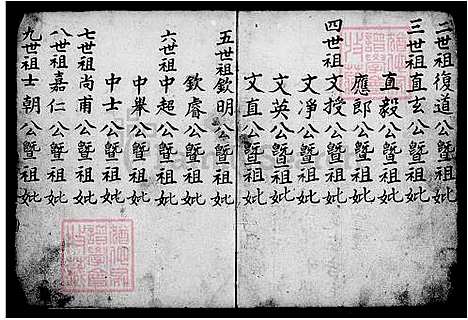 二世祖復道公曁祖妣
三世祖直玄公曁祖妣
直毅公曁祖妣
應郎公曁祖妣
四世祖文授公曁祖妣
文淨公曁祖妣
文英公曁祖妣
文直公曁祖妣
五世祖欽明公曁祖妣
欽睿公曁祖妣
六世祖中超公曁祖妣
中舉公曁祖妣
中士公曁祖妣
七世祖尚甫公曁祖妣
八世祖嘉仁公曁祖妣
九世祖士朝公曁祖妣